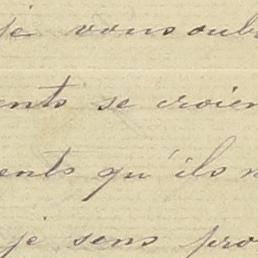 je vous oubl
ents se croien
ents qu'ils n
je sens pro